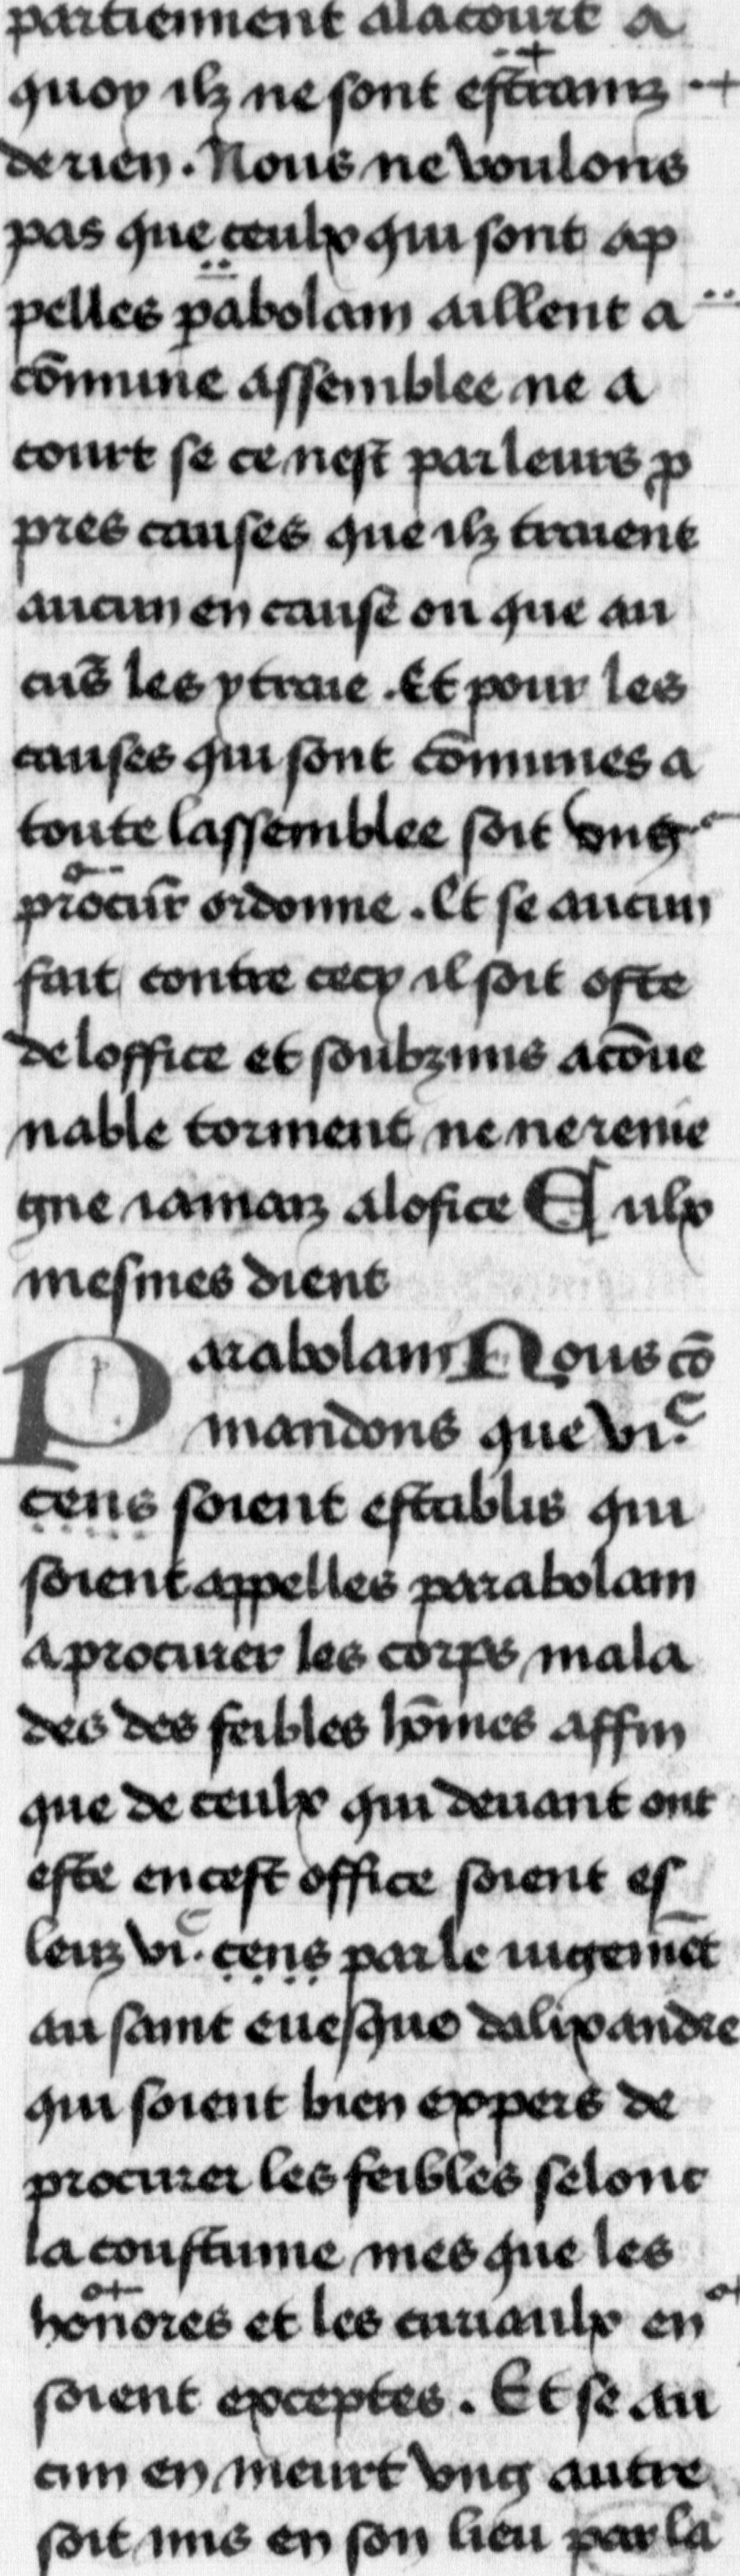 partiennent alacourt a
quoy ilz ne sont estrainz
de rien . Nous ne voulons
pas que ceulx qui sont ap
pelles pabolam aillent a
cōmune assemblee ne a
court se ce nest par leurs p
pres causes que ilz traient
aucun en cause ou que au
cūs les y traie . Et pour les
causes qui sont cōmunes a
toute lassemblee soit vng
procur̄ ordonne . Et se aucun
fait contre cecy il soit oste
de loffice et soubzmis a cōue
nable torment ne ne reuie
gne iamaiz alofice Eulx
mesmes dient
Parabolam Nous cō
mandons que vi.c
cens soient establis qui
soient appelles parabolam
a procurer les corps mala
des des feibles hōmes affin
que de ceulx qui deuant ont
este en cest office soient es
leuz vi.c cens par le iugemēt
au saint euesque dalixandre
qui soient bien expers de
procurer les feibles selont
la coustume mes que les
hōnores et les curiaulx en
soient exceptes . Et se au
cun en meurt vng autre
soit mis en son lieu par la